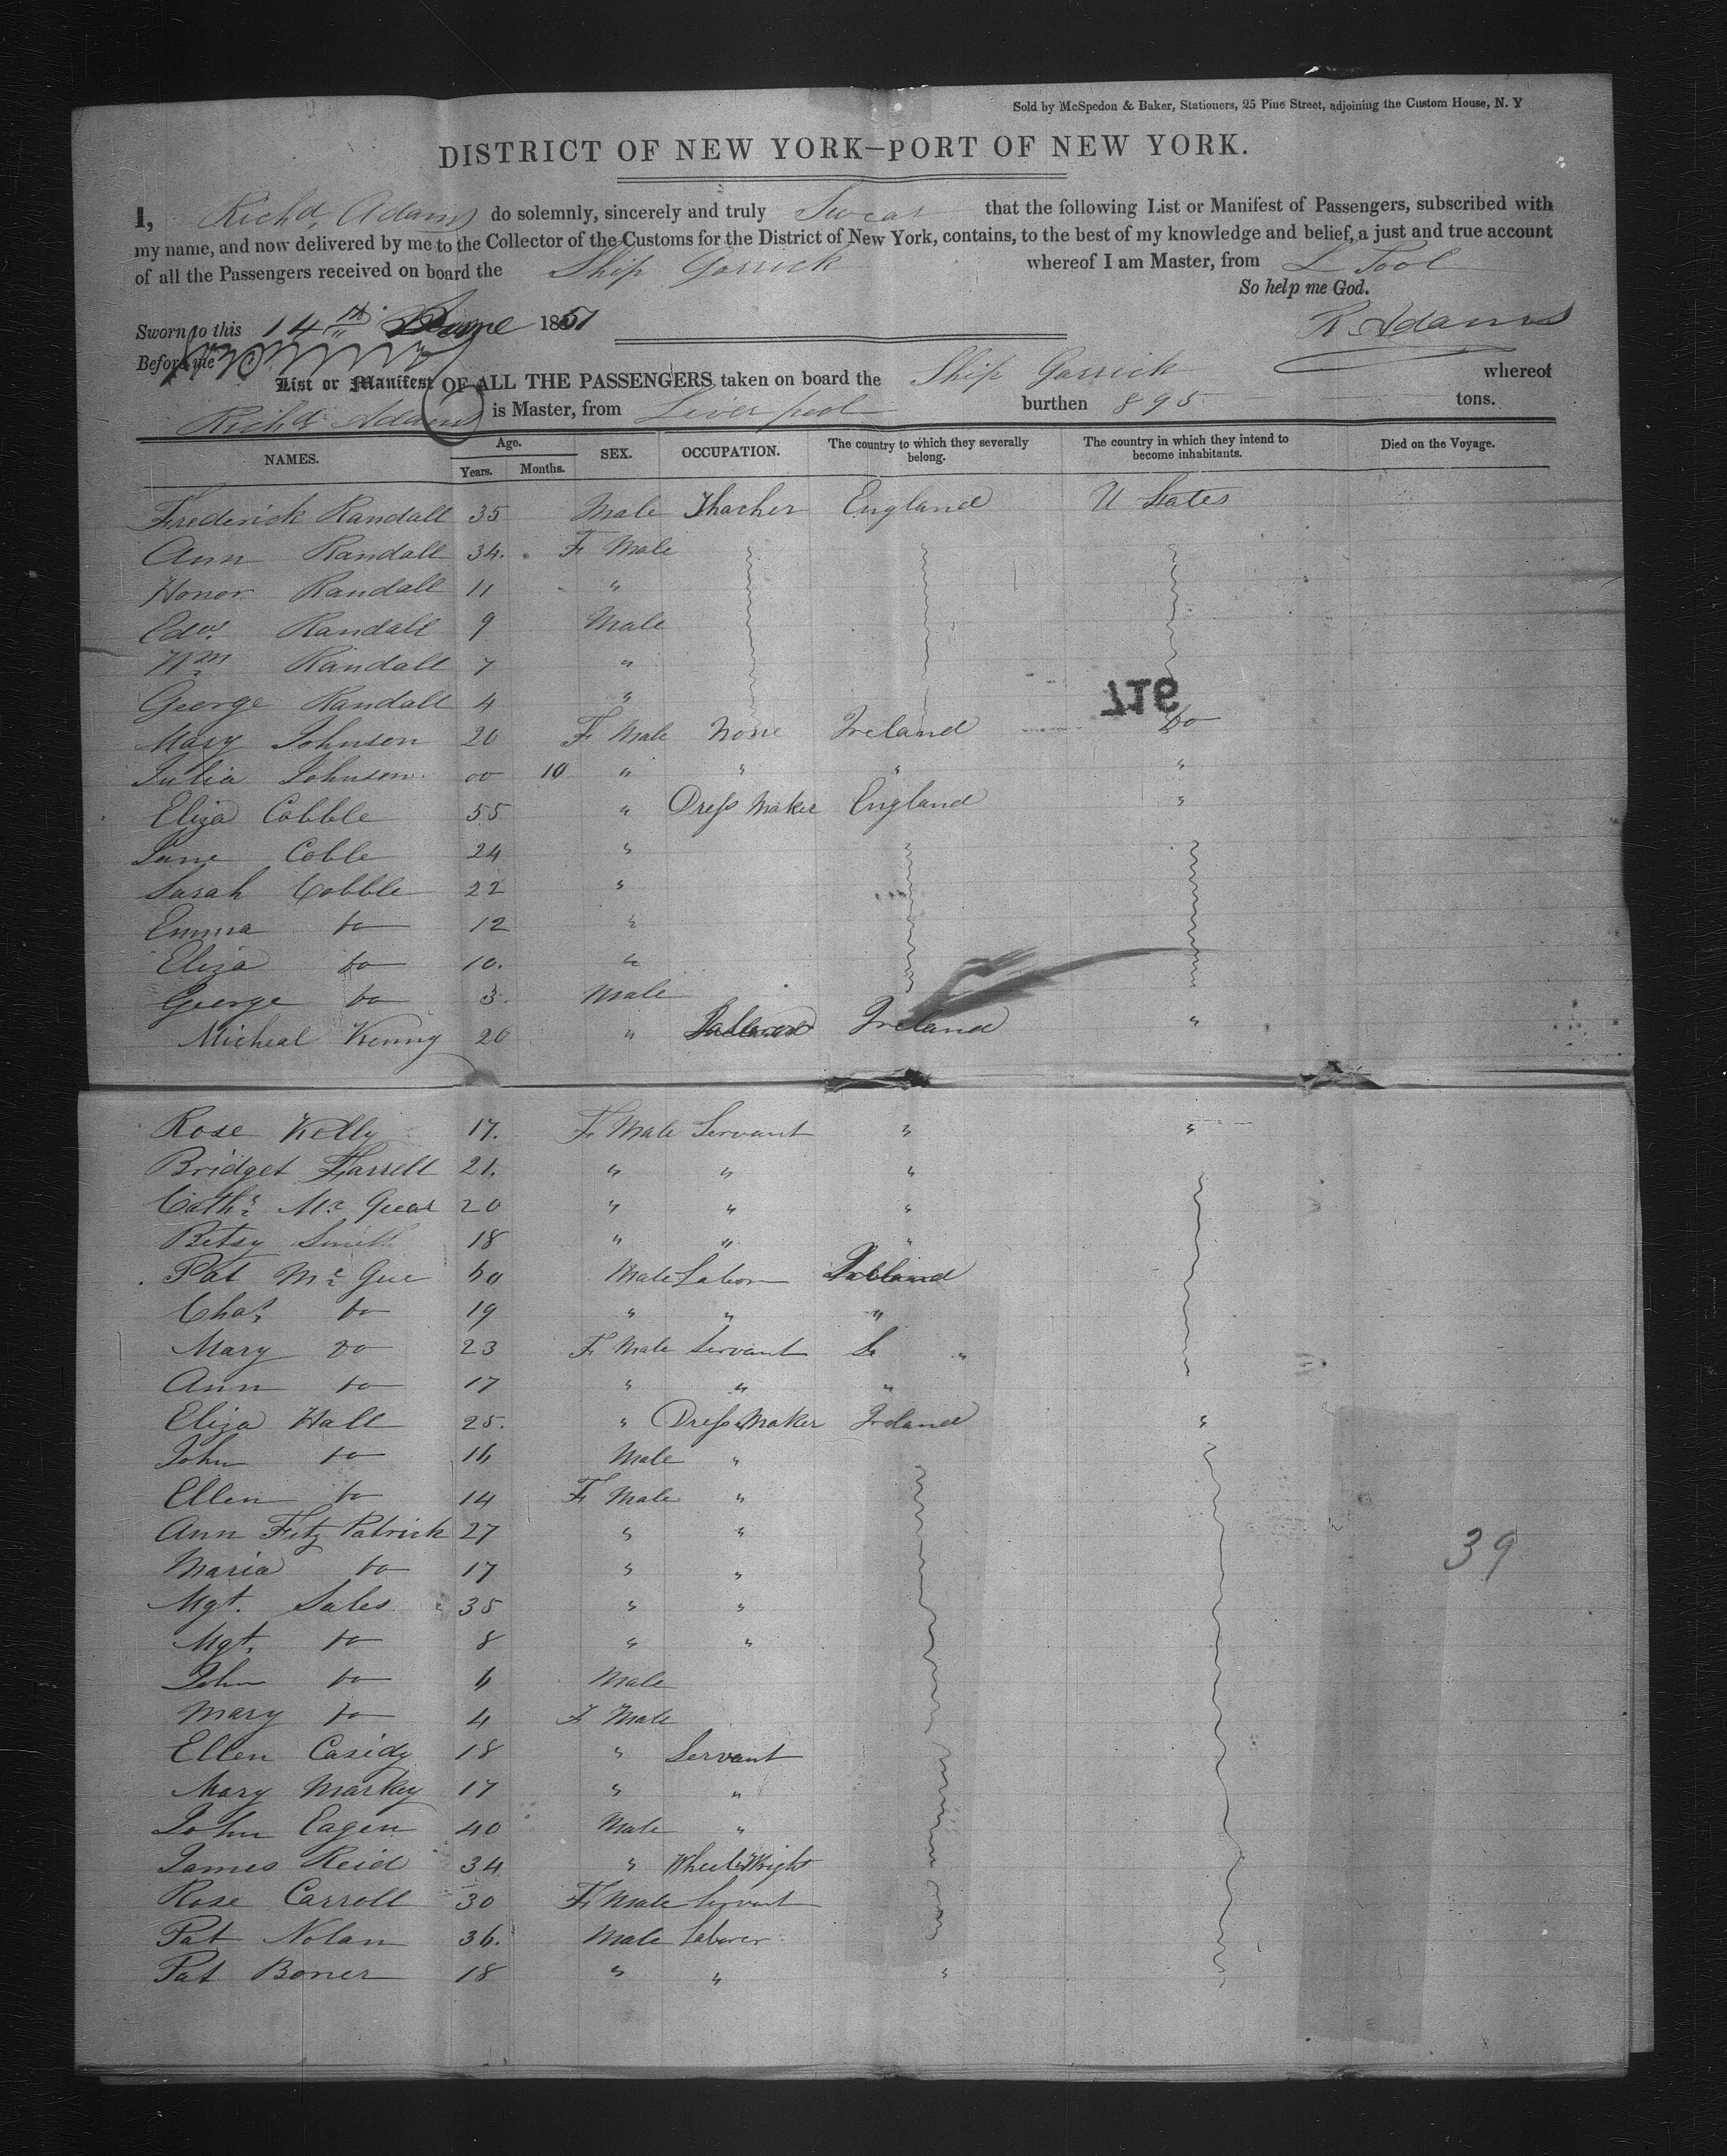 Sold by McSpedon & Baker, Stationers, 25 Pine Street, adjoining the Custom House, N. Y
DISTRICT OF NEW YORK—PORT OF NEW YORK.
I, Richd. Adams do solemnly, sincerely and truly Swear that the following List or Manifest of Passengers, subscribed with
my name, and now delivered by me to the Collector of the Customs for the District of New York, contains, to the best of my knowledge and belief, a just and true account
of all the Passengers received on board the Ship Garrick whereof I am Master, from L Pool
So help me God.
Sworn to this 14th June 1851 R Adams
Before me
List or Manifest OF ALL THE PASSENGERS taken on board the Ship Garrick whereof
Richd Adams is Master, from Liverpool burthen 895 tons.
NAMES. Age. Years. Months. SEX. OCCUPATION. The country to which they severally belong. The country in which they intend to become inhabitants. Died on the Voyage.
Frederick Randall 35 Male Thacher England U States
Ann Randall 34. F Male
Honor Randall 11 "
Edwd. Randall 9 Male
Wm Randall 7 "
George Randall 4 "
716
Mary Johnson 20 F Male None Ireland Do
Julia Johnson 00 10 " " " "
Eliza Cobble 55 " Dress Maker England "
Jane Coble 24 "
Sarah Cobble 22 "
Emma do 12 "
Eliza do 10. "
George do 3. Male
Micheal Kenny 20 " Ireland "
Rose Kelly 17. F Male Servant " "
Bridget Farrell 21. " " "
Cath. Mc 20 " " "
Betsy Smith 18 " " "
Pat Mc Gue 50 Male Labor Ireland
Chas do 19 " " "
Mary do 23 F Male Servant "
Ann do 17 " " "
Eliza Hall 25. " Dress Maker Ireland "
John do 16 Male "
Ellen do 14 F Male "
Ann Fitz Patrick 27 " "
39
Maria do 17 " "
Mgt. Sales 35 " "
Mgt. do 8 " "
John do 6 Male
Mary do 4 F Male
Ellen Casidy 18 " Servant
Mary Markey 17 " "
John Eagen 40 Male "
James Reid 34 " Wheel Wright
Rose Carroll 30 F Male Servant
Pat Nolan 36. Male Laborer
Pat Boner 18 " " "